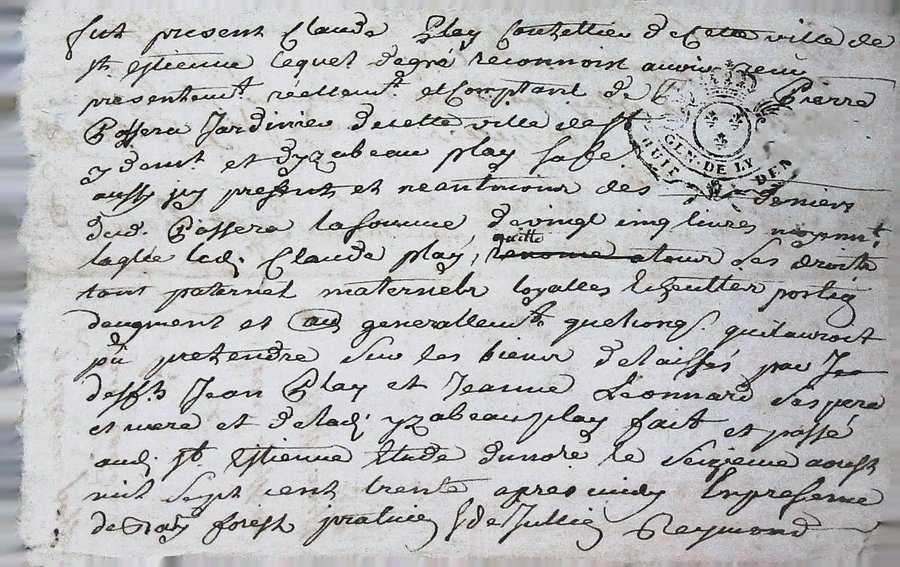 fut present Claude Play Coutellier de Cette ville de
St. Estienne lequel de gré reconnoit avoir reçu
presentemt. reellemt. et comptant de Pierre
Passera Jardinier de cette ville de St
et d'yzabeau play sa fe
aussy icy present et des deniers
dud. Passera la somme de vingt cinq livres moyent.
laqlle led. Claude play, quitte renonce a tour ses droits
tant paternel maternels loyalles portiq
daugment et aus generallemt. quelconqs. quil auroit
pû pretendre sur les biens delaissés par Je
deffts Jean Play et Jeanne Leonnard ses pere
et mere et de lad. yzabeau play fait et passé
aud. St. Estienne Etude du nore le seizieme aoust
mil sept cent trente apres midy En presence
de forest praticien & de Jullie Reymond
GEN. DE LY